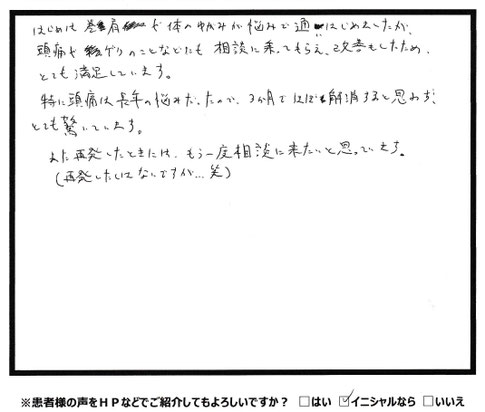 はじめは 巻肩 や体のゆがみが悩みで通いはじめましたが、
頭痛や ゲリのことなどにも 相談に乗ってもらえ、改善もしたため、
とても満足しています。
特に頭痛は長年の悩みだったので、2か月でほぼ解消すると思わず、
とても驚いています。
また再発したときには、もう一度相談に来たいと思っています。
(再発したくはないですが…笑)
※患者様の声をHPなどでご紹介してもよろしいですか？ □はい ☑イニシャルなら □いいえ